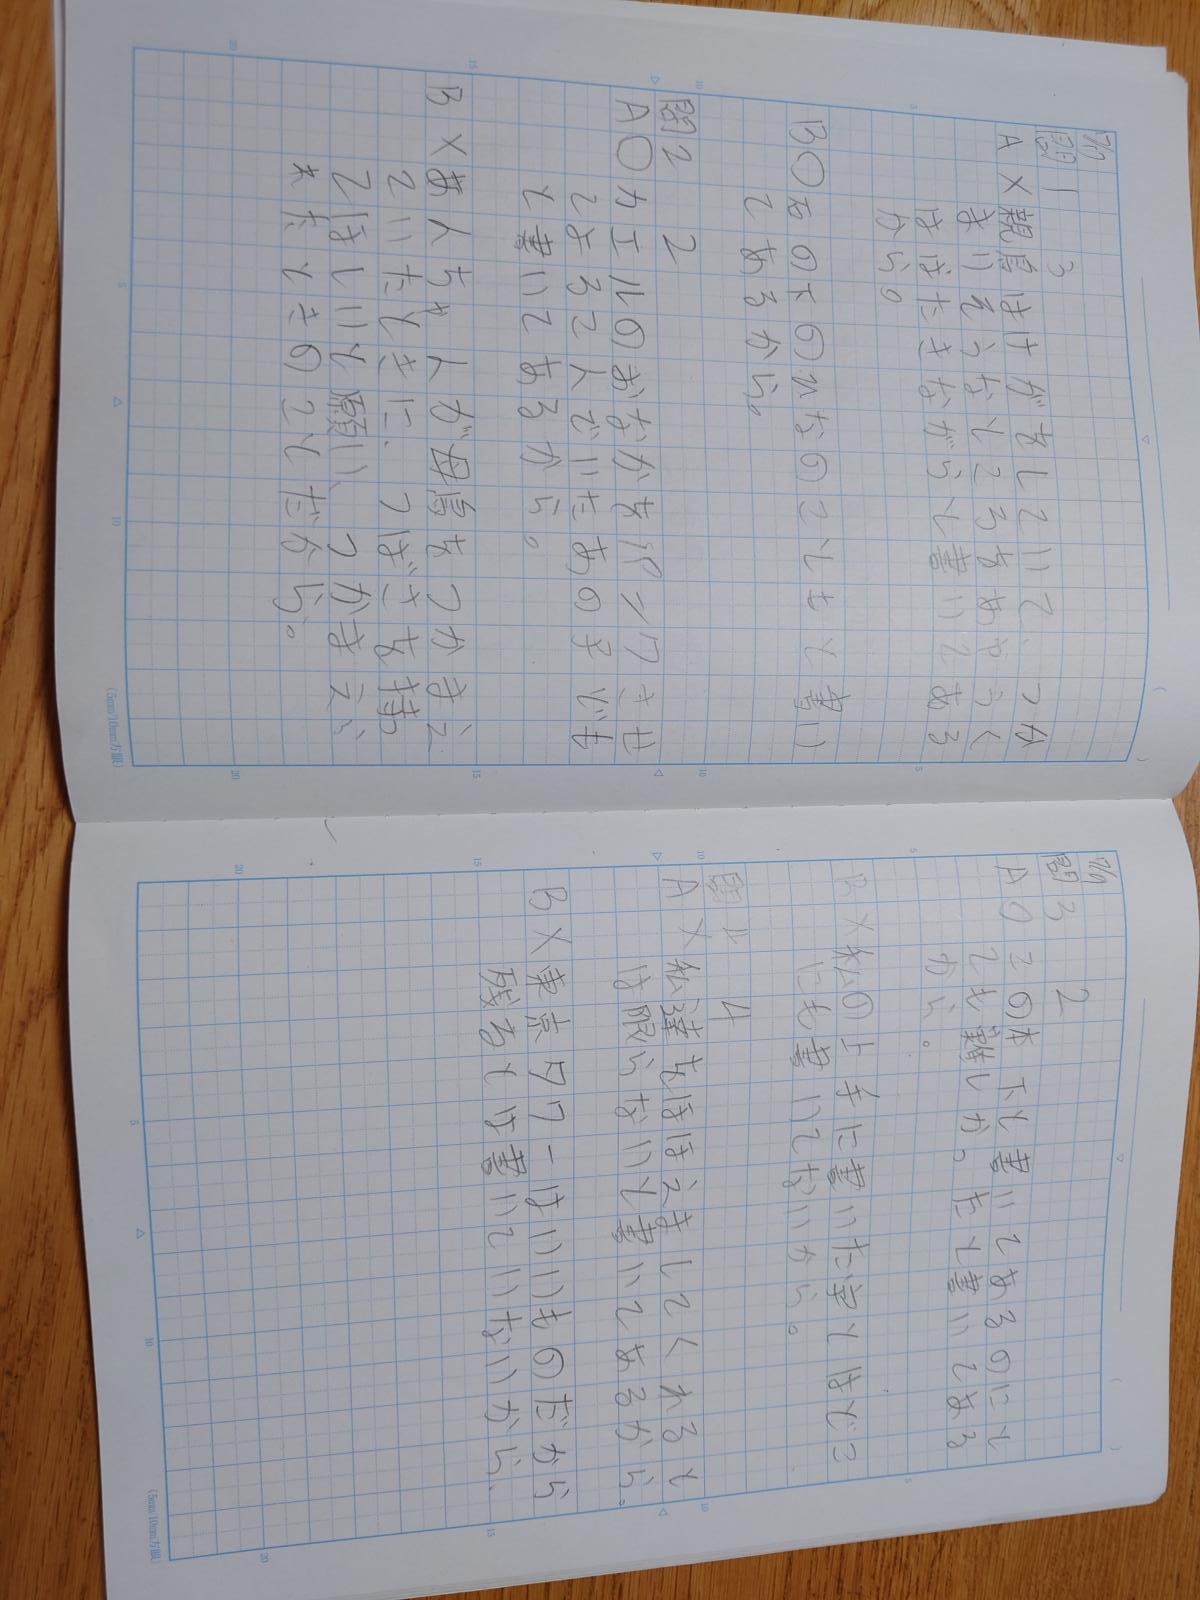 7/9
問1 3
A ×親鳥はけがをしていて、つか
まりそうなところをあやうく
はばたきながらと書いてある
から。
B○なの下のひなのこともと書い
てあるから。
問2 2
A○カエルのおなかをパンクさせ
てよろこんでいたあの子ども
と書いてあるから。
B ×あんちゃんが母鳥をつかまえ
ていたときに、つばさを持
てほしいと願い、つかまえら
れたときのことだから。
7/9
問3 2
A○この本下と書いてあるのにと
ても難しかったと書いてある
から。
B×私の上手に書いた字とはどこ
にも書いてないから。
問4 4
A×友達もほほえましてくれると
は限らないと書いてあるから。
B×東京タワーはいいものだから
残すとは書いていないから。
20
15
10
5
(5mm/10mm方眼)
20
15
10
5
(5mm/10mm方眼)